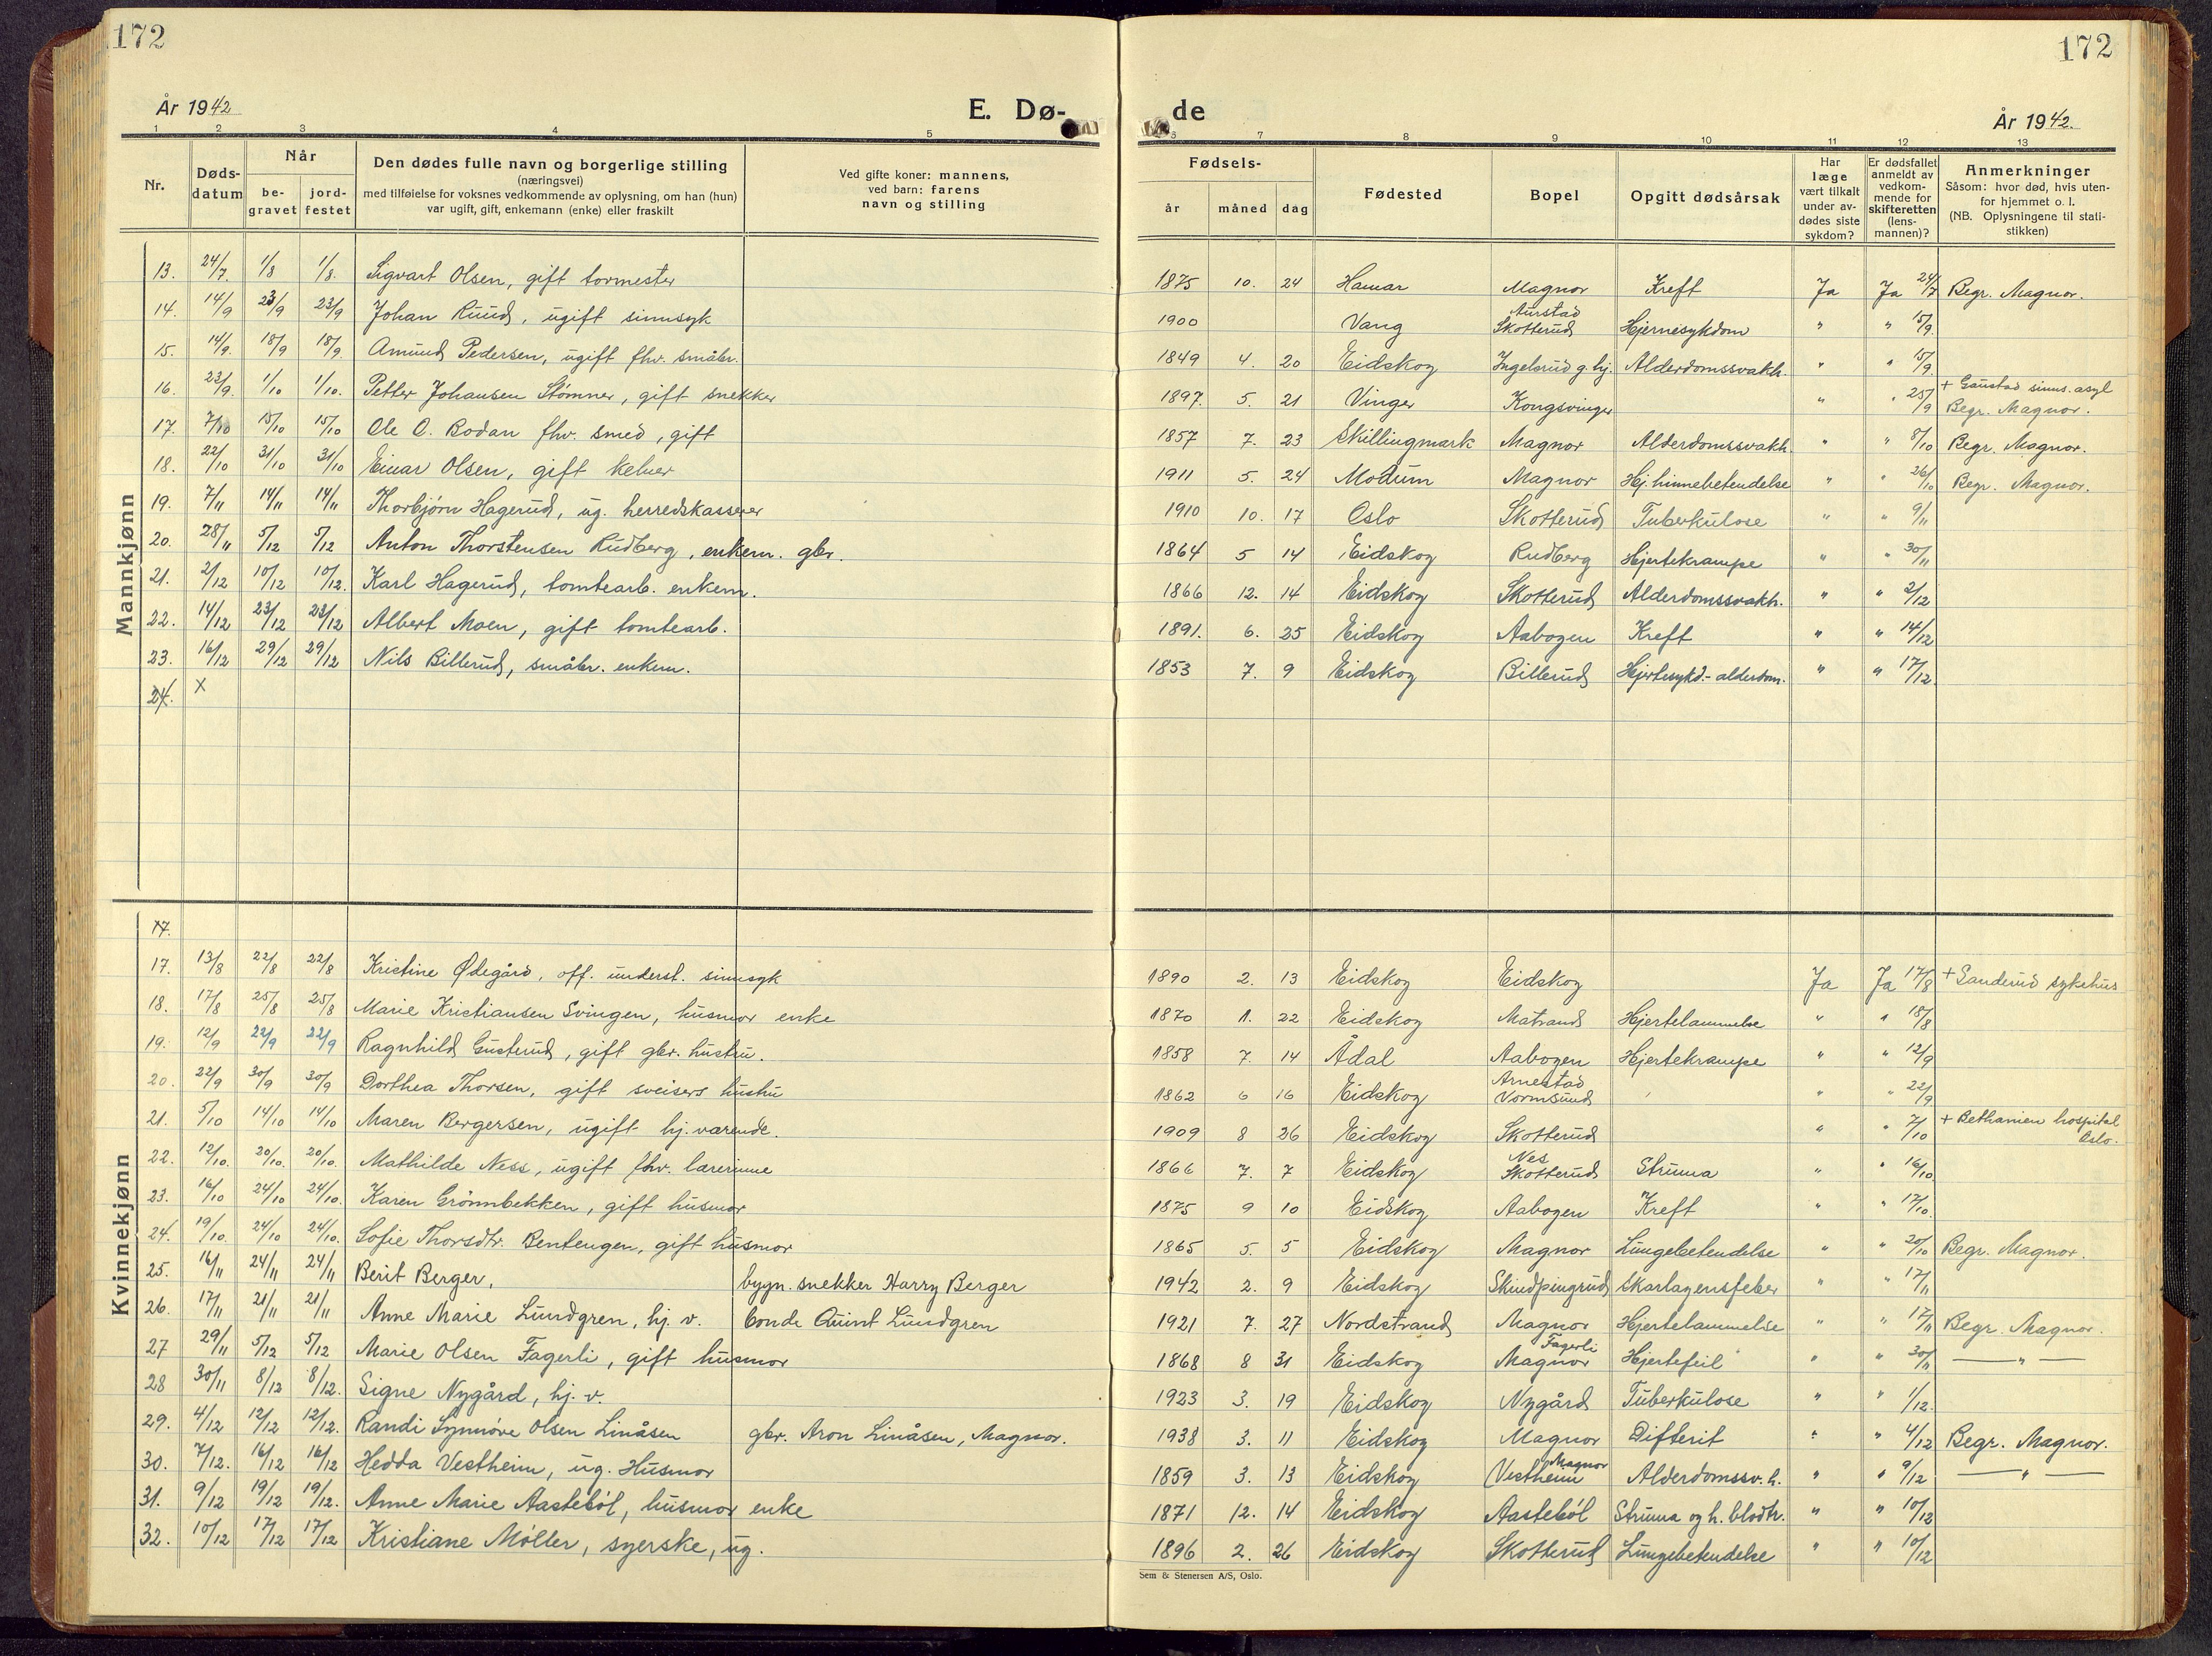 172
172
År 1942
E. Dø-
de
År 1942.
1 2 3 4 5 6 7 8 9 10 11 12 13
Nr.
Døds-
datum
Når
be-
gravet
jord-
festet
Den dødes fulle navn og borgerlige stilling
(næringsvei)
med tilføielse for voksnes vedkommende av oplysning, om han (hun)
var ugift, gift, enkemann (enke) eller fraskilt
Ved gifte koner: mannens,
ved barn: farens
navn og stilling
Fødsels-
år måned dag
Fødested
Bopel
Opgitt dødsårsak
Har
læge
vært tilkalt
under av-
dødes siste
sykdom?
Er dødsfallet
anmeldt av
vedkom-
mende for
skifteretten
(lens-
mannen)?
Anmerkninger
Såsom: hvor død, hvis uten-
for hjemmet o. l.
(NB. Oplysningene til stati-
stikken)
Mannkjønn
13. 24/7 1/8 1/8. Sigvart Olsen, gift tormester 1875 10. 24 Hamar Magnor Kreft Ja Ja 24/7 Begr. Magnor.
14. 14/9 23/9 23/9 Johan Ruud, ugift sinnsyk 1900 Vang Aurstad Skotterud Hjernesykdom " " 15/9.
15. 14/9. 18/9 18/9. Amund Pedersen, ugift fhv. småbr. 1849 4. 20 Eidskog Ingelsrud g.hj. Alderdomssvakh. " " 15/9.
16. 23/9. 1/10 1/10. Petter Johansen Stømner, gift snekker 1897. 5. 21 Vinger Kongsvinger " " 25/9 + Gaustad sinns.asyl Begr. Magnor.
17. 7/10 15/10 15/10 Ole O. Bodan fhv. smed, gift 1857 7. 23 Skillingmark Magnor Alderdomssvakh. " " 8/10 Begr. Magnor.
18. 22/10 31/10 31/10 Einar Olsen, gift kelner 1911 5. 24 Modum Magnor Hj.hinnebetendelse " " 26/10 Begr. Magnor.
19. 7/11 14/11 14/11 Thorbjørn Hagerud, ug. herredskasserer 1910 10. 17 Oslo Skotterud Tuberkulose " " 9/11
20. 28/11 5/12 5/12 Anton Thorstensen Rudberg, enkem. gbr. 1864 5 14 Eidskog Rudberg Hjertekrampe " " 30/11
21. 2/12 10/12 10/12. Karl Hagerud, tomtearb. enkem. 1866 12. 14 Eidskog Skotterud Alderdomssvakh. " " 2/12
22. 14/12 23/12 23/12 Albert Moen, gift tomtearb. 1891. 6. 25 Eidskog Aabogen Kreft " " 14/12
23. 16/12 29/12 29/12 Nils Billerud, småbr. enkem. 1853 7. 9 Eidskog Billerud Hjertesykd.- alderdom. " " 17/12.
24. x
Kvinnekjønn
17.
17. 13/8 22/8 22/8 Kristine Ødegård, off. underst. sinnsyk 1890 2. 13 Eidskog Eidskog Ja Ja 17/8 + Sanderud sykehus
18. 17/8 25/8 25/8 Marie Kristiansen Svingen, husmor enke 1870 1. 22 Eidskog Matrand Hjertelammelse " " 18/8
19. 12/9 22/9 22/9 Ragnhild Gusterud, gift gbr. hustru. 1858 7. 14 Ådal Aabogen Hjertekrampe " " 12/9
20. 22/9 30/9 30/9 Dorthea Thorsen, gift sveisers hustru 1862 6 16 Eidskog Arnestad Vormsund " " 22/9
21. 5/10 14/10 14/10 Maren Bergersen, ugift hj.værende. 1909 8 26 Eidskog Skotterud " " 7/10 + Bethanien hospital Oslo.
22. 12/10. 20/10. 20/10. Mathilde Ness, ugift fhv. lærerinne 1866 7. 7 Eidskog Nes Skotterud Struma " " 16/10
23. 16/10 24/10 24/10. Karen Grønnbekken, gift husmor 1875 9 10 Eidskog Aabogen Kreft " " 17/10.
24. 19/10. 24/10 24/10. Sofie Thorsdtr. Bentengen, gift husmor 1865 5. 5 Eidskog Magnor Lungebetendelse " " 20/10 Begr. Magnor.
25. 16/11 24/11 24/11 Berit Berger, bygn. snekker Harry Berger 1942 2. 9 Eidskog Skindpungrud Skarlagensfeber " " 17/11
26. 17/11 21/11 21/11 Anne Marie Lundgren, hj. v. bonde Quint Lundgren 1921 7. 27 Nordstrand Magnor Hjertelammelse " " 17/11 Begr. Magnor.
27 29/11 5/12 5/12 Marie Olsen Fagerli, gift husmor 1868 8 31 Eidskog Fagerli Magnor Hjertefeil " " 30/11 — " —
28 30/11 8/12 8/12. Signe Nygård, hj. v. 1923 3. 19 Eidskog Nygård Tuberkulose " " 1/12.
29. 4/12 12/12 12/12. Randi Synnøve Olsen Linåsen gbr. Aron Linåsen, Magnor. 1938 3. 11 Eidskog Magnor Difterit " " 4/12 Begr. Magnor.
30. 7/12. 16/12 16/12 Hedda Vestheim, ug. Husmor 1859 3. 13 Eidskog Magnor Vestheim Alderdomssv.h. " " 9/12 — " —
31. 9/12 19/12 19/12. Anne Marie Aastebøl, husmor enke 1871 12. 14 Eidskog Aastebøl Struma og h. blodtr. " " 10/12
32. 10/12 17/12 17/12 Kristiane Møller, syerske, ug. 1896 2. 26 Eidskog Skotterud Lungebetendelse " " 10/12
Sem & Stenersen A/S, Oslo.